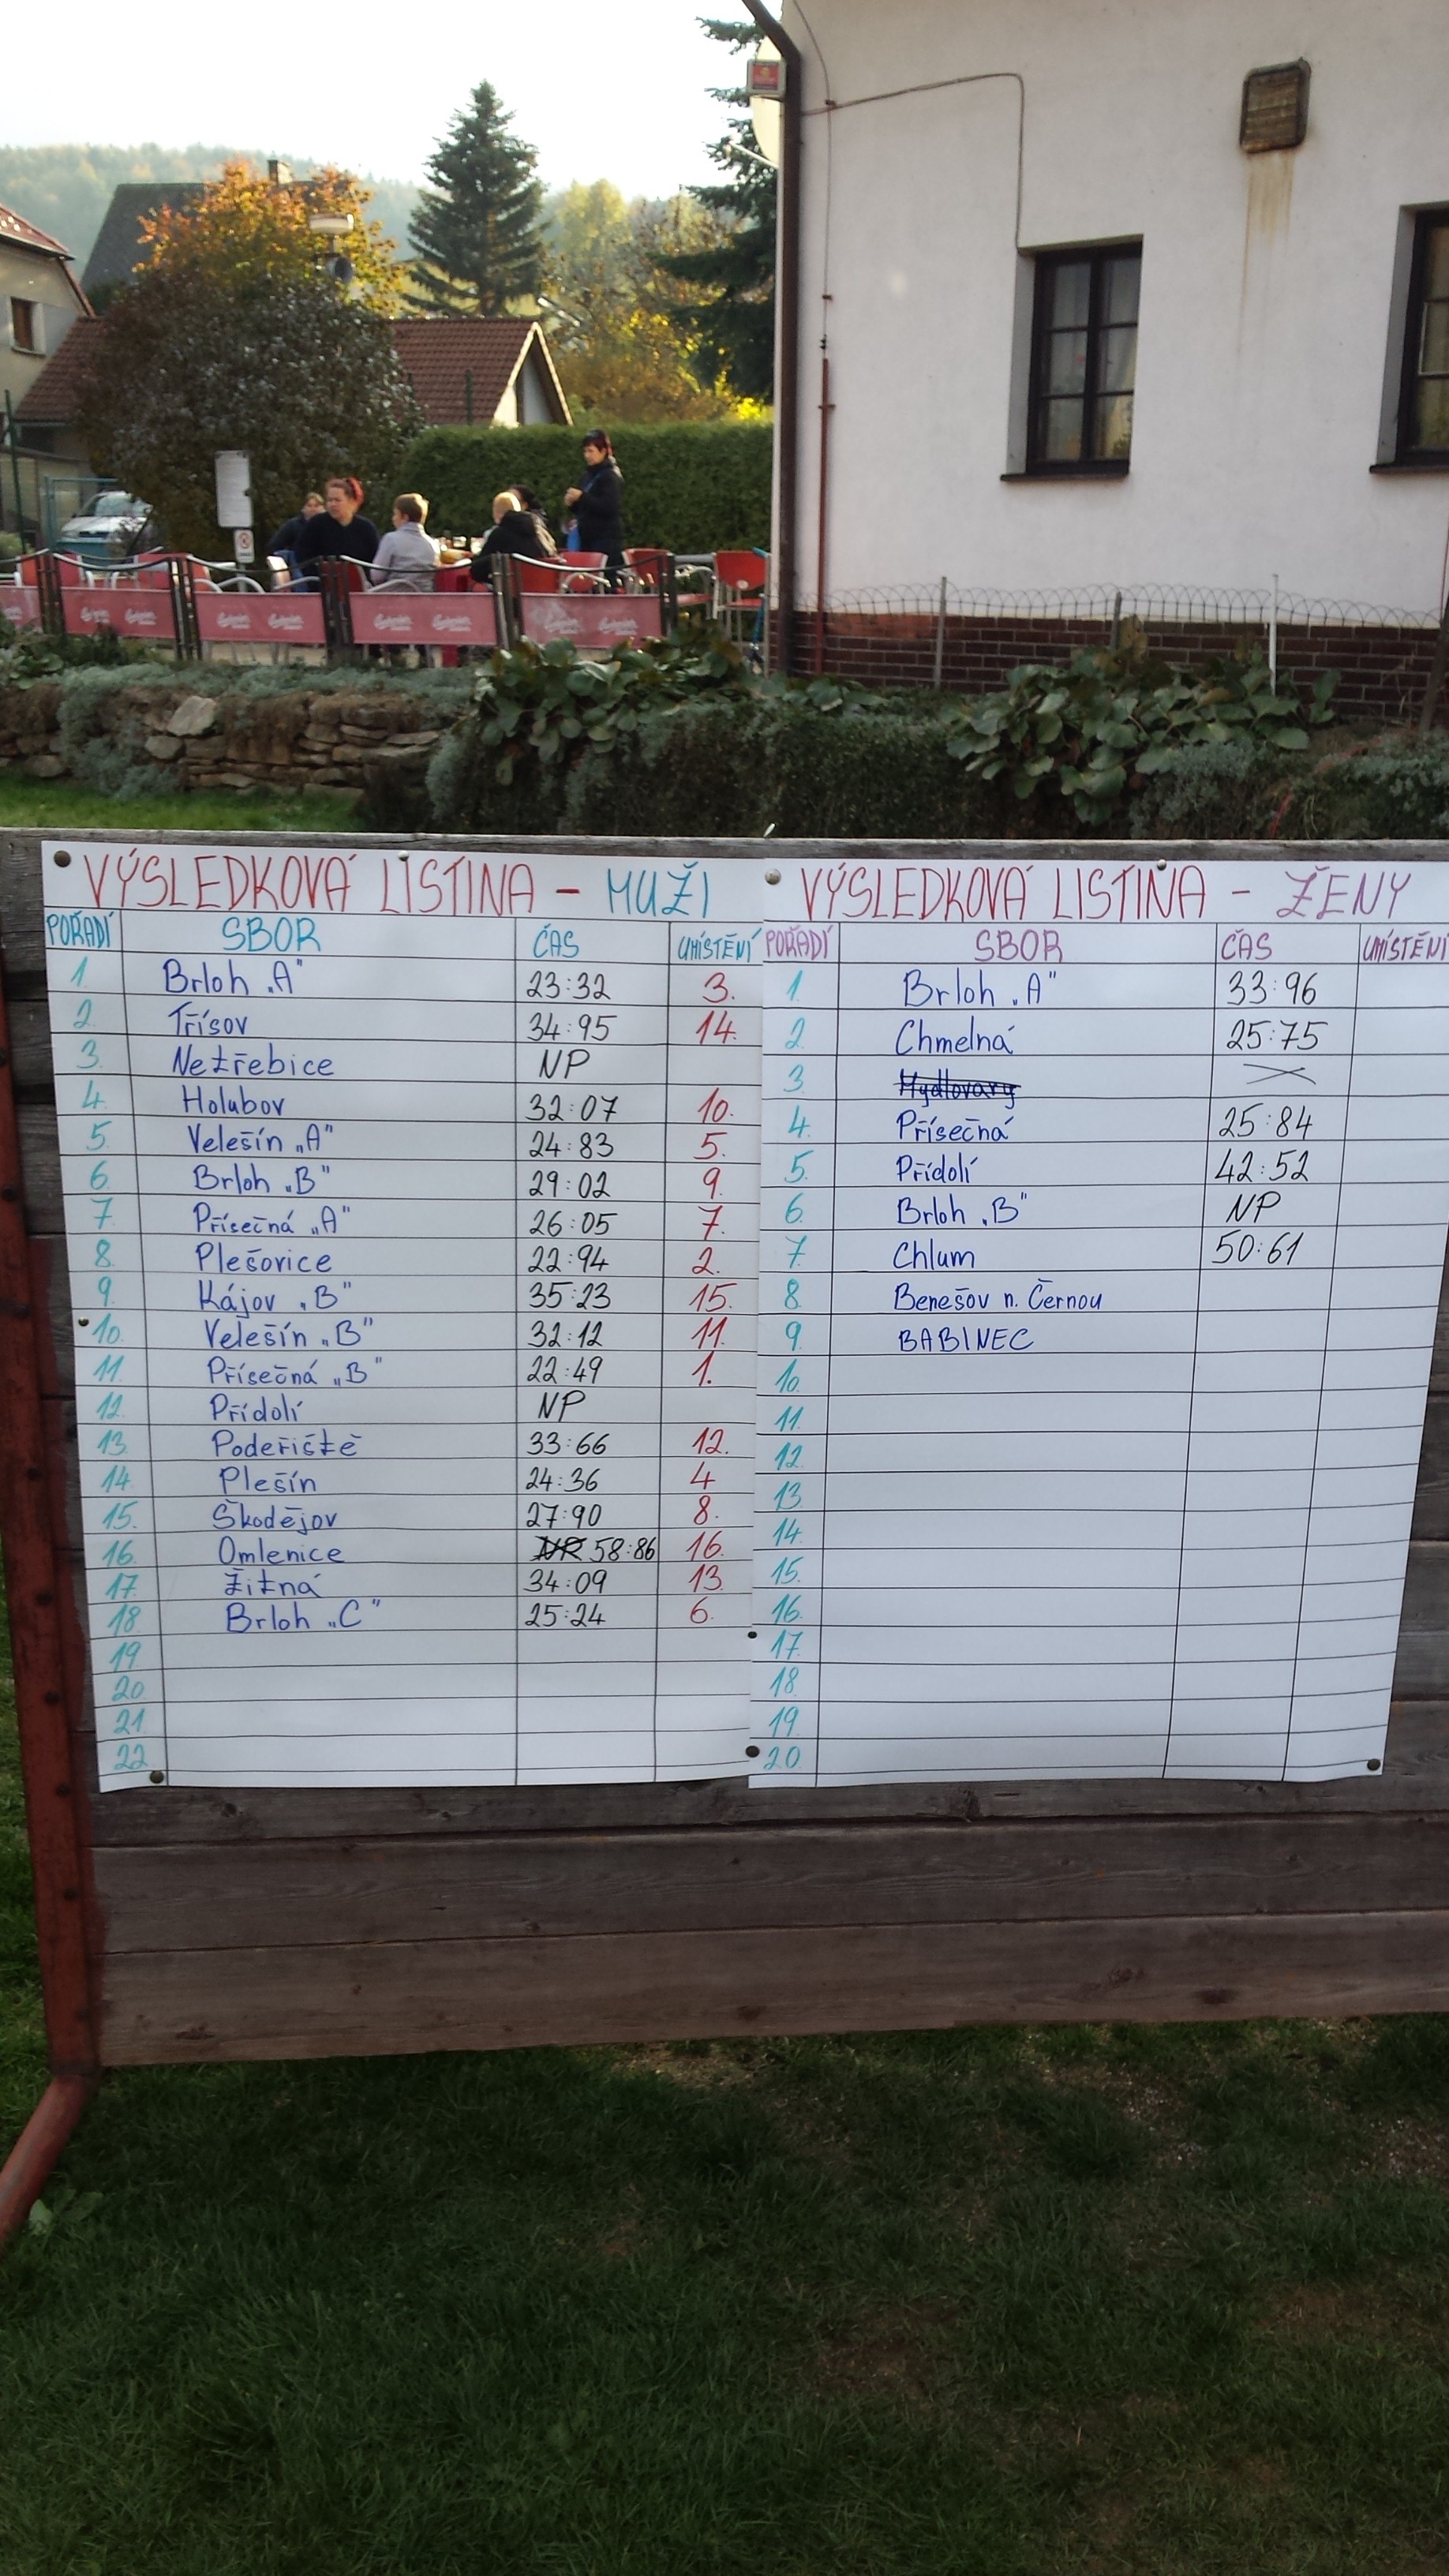 VÝSLEDKOVÁ LISTINA - MUŽI
POŘADÍ SBOR ČAS UMÍSTĚNÍ
1. Brloh „A" 23:32 3.
2. Třísov 34:95 14.
3. Netřebice NP
4. Holubov 32:07 10.
5. Velešín „A" 24:83 5.
6. Brloh „B" 29:02 9.
7. Přísečná „A" 26:05 7.
8. Plešovice 22:94 2.
9. Kájov „B" 35:23 15.
10. Velešín „B" 32:12 11.
11. Přísečná „B" 22:49 1.
12. Přídolí NP
13. Podeřiště 33:66 12.
14. Plešín 24:36 4
15. Škodějov 27:90 8.
16. Omlenice 58:86 16.
17. Žitná 34:09 13.
18. Brloh „C" 25:24 6.
19.
20.
21.
22.
VÝSLEDKOVÁ LISTINA - ŽENY
POŘADÍ SBOR ČAS UMÍSTĚNÍ
1. Brloh „A" 33:96
2. Chmelná 25:75
3. Mydlovary
4. Přísečná 25:84
5. Přídolí 42:52
6. Brloh „B" NP
7. Chlum 50:61
8. Benešov n. Černou
9. BABINEC
10.
11.
12.
13.
14.
15.
16.
17.
18.
19.
20.